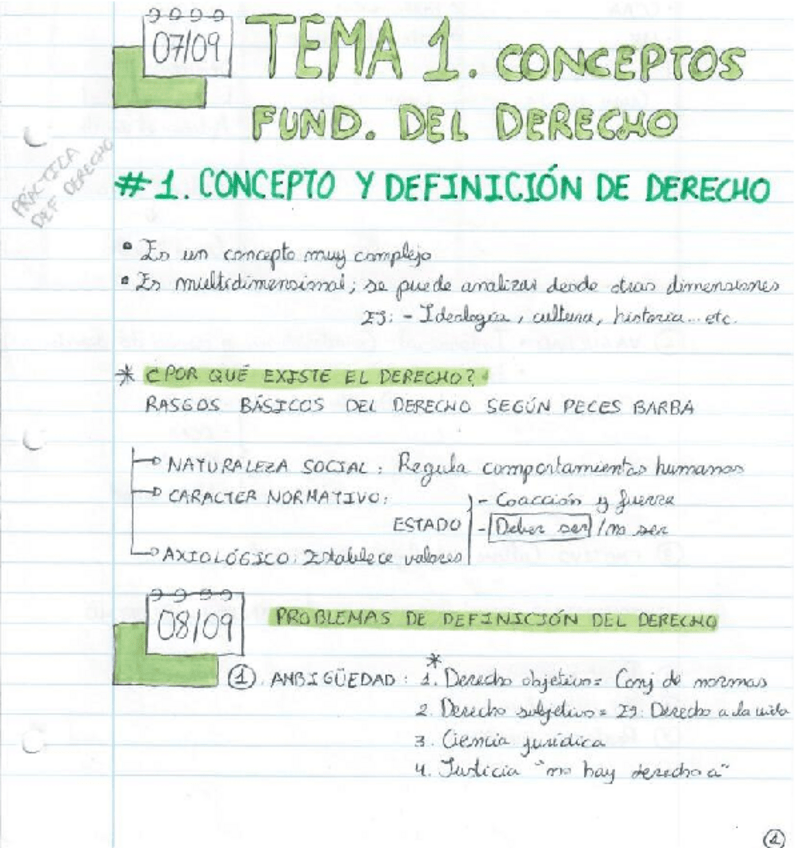 07/09
TEMA 1. CONCEPTOS
FUND. DEL DERECHO
PRÁCTICA
DEF DERECHO
#1. CONCEPTO Y DEFINICIÓN DE DERECHO
• Es un concepto muy complejo
• Es multidimensional; se puede analizar desde otras dimensiones
EJ: - Ideología, cultura, historia... etc.
* ¿POR QUÉ EXISTE EL DERECHO?
RASGOS BÁSICOS DEL DERECHO SEGÚN PECES BARBA
→ NATURALEZA SOCIAL: Regula comportamientos humanos
→ CARACTER NORMATIVO: - Coacción y fuerza
ESTADO - Deber ser / no ser
→ AXIOLÓGICO: Establece valores
08/09
PROBLEMAS DE DEFINICIÓN DEL DERECHO
① AMBIGÜEDAD: *1. Derecho objetivo = Conj de normas
2. Derecho subjetivo = EJ: Derecho a la vida
3. Ciencia jurídica
4. Justicia "no hay derecho a"
①